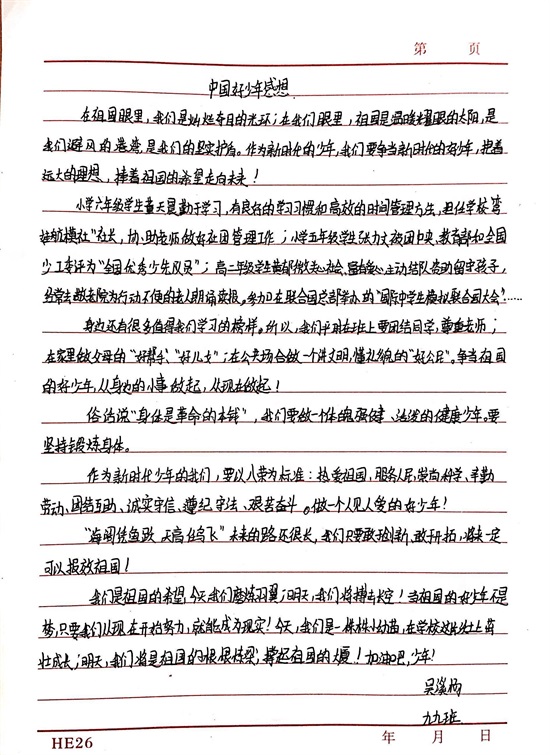 第 页
中国好少年感想
在祖国眼里,我们是灿烂夺目的光环;在我们眼里,祖国是温暖耀眼的太阳,是
我们避风的港湾,是我们的坚实护盾。作为新时代的少年,我们要争当新时代的好少年,抱着
远大的理想,捧着祖国的希望走向未来!
小学六年级学生童天昊勤于学习,有良好的学习习惯和高效的时间管理方法,担任学校
航模社"社长,协助老师做好社团管理工作;小学五年级学生张力文被团中央、教育部和全国
少工委评为"全国优秀少先队员";高二年级学生黄郁微关心社会、主动结队牵动留守孩子,
经常去敬老院为行动不便的老人朗诵读报。参加在联合国总部举办的"国际中学生模拟联合国大会"……
身边还有很多值得我们学习的榜样。所以,我们平时在班上要团结同学,尊重老师;
在家里做父母的"好帮手、"好儿女";在公共场合做一个讲文明,懂礼貌的"好公民"。争当祖国
的好少年,从身边的小事做起,从现在做起!
俗话说"身体是革命的本钱",我们要做一个体魄强健、活泼的健康少年。要
坚持锻炼身体。
作为新时代少年的我们,要以八荣为标准:热爱祖国,服务人民,崇尚科学、辛勤
劳动、团结互助、诚实守信、遵纪守法、艰苦奋斗。做一个人见人爱的好少年!
"海阔凭鱼跃 天高任鸟飞"未来的路还很长,我们只要敢于创新、敢于开拓,将来一定
可以报效祖国!
我们是祖国的希望,今天我们磨炼羽翼;明天,我们将搏击长空!当祖国的好少年不是
梦,只要我们从现在开始努力,就能成为现实!今天,我们是一株株小幼苗,在学校这块沃土上茁
壮成长;明天,我们将是祖国的根根栋梁,撑起祖国的大厦!加油吧,少年!
吴溪杨
九九班
HE26 年 月 日